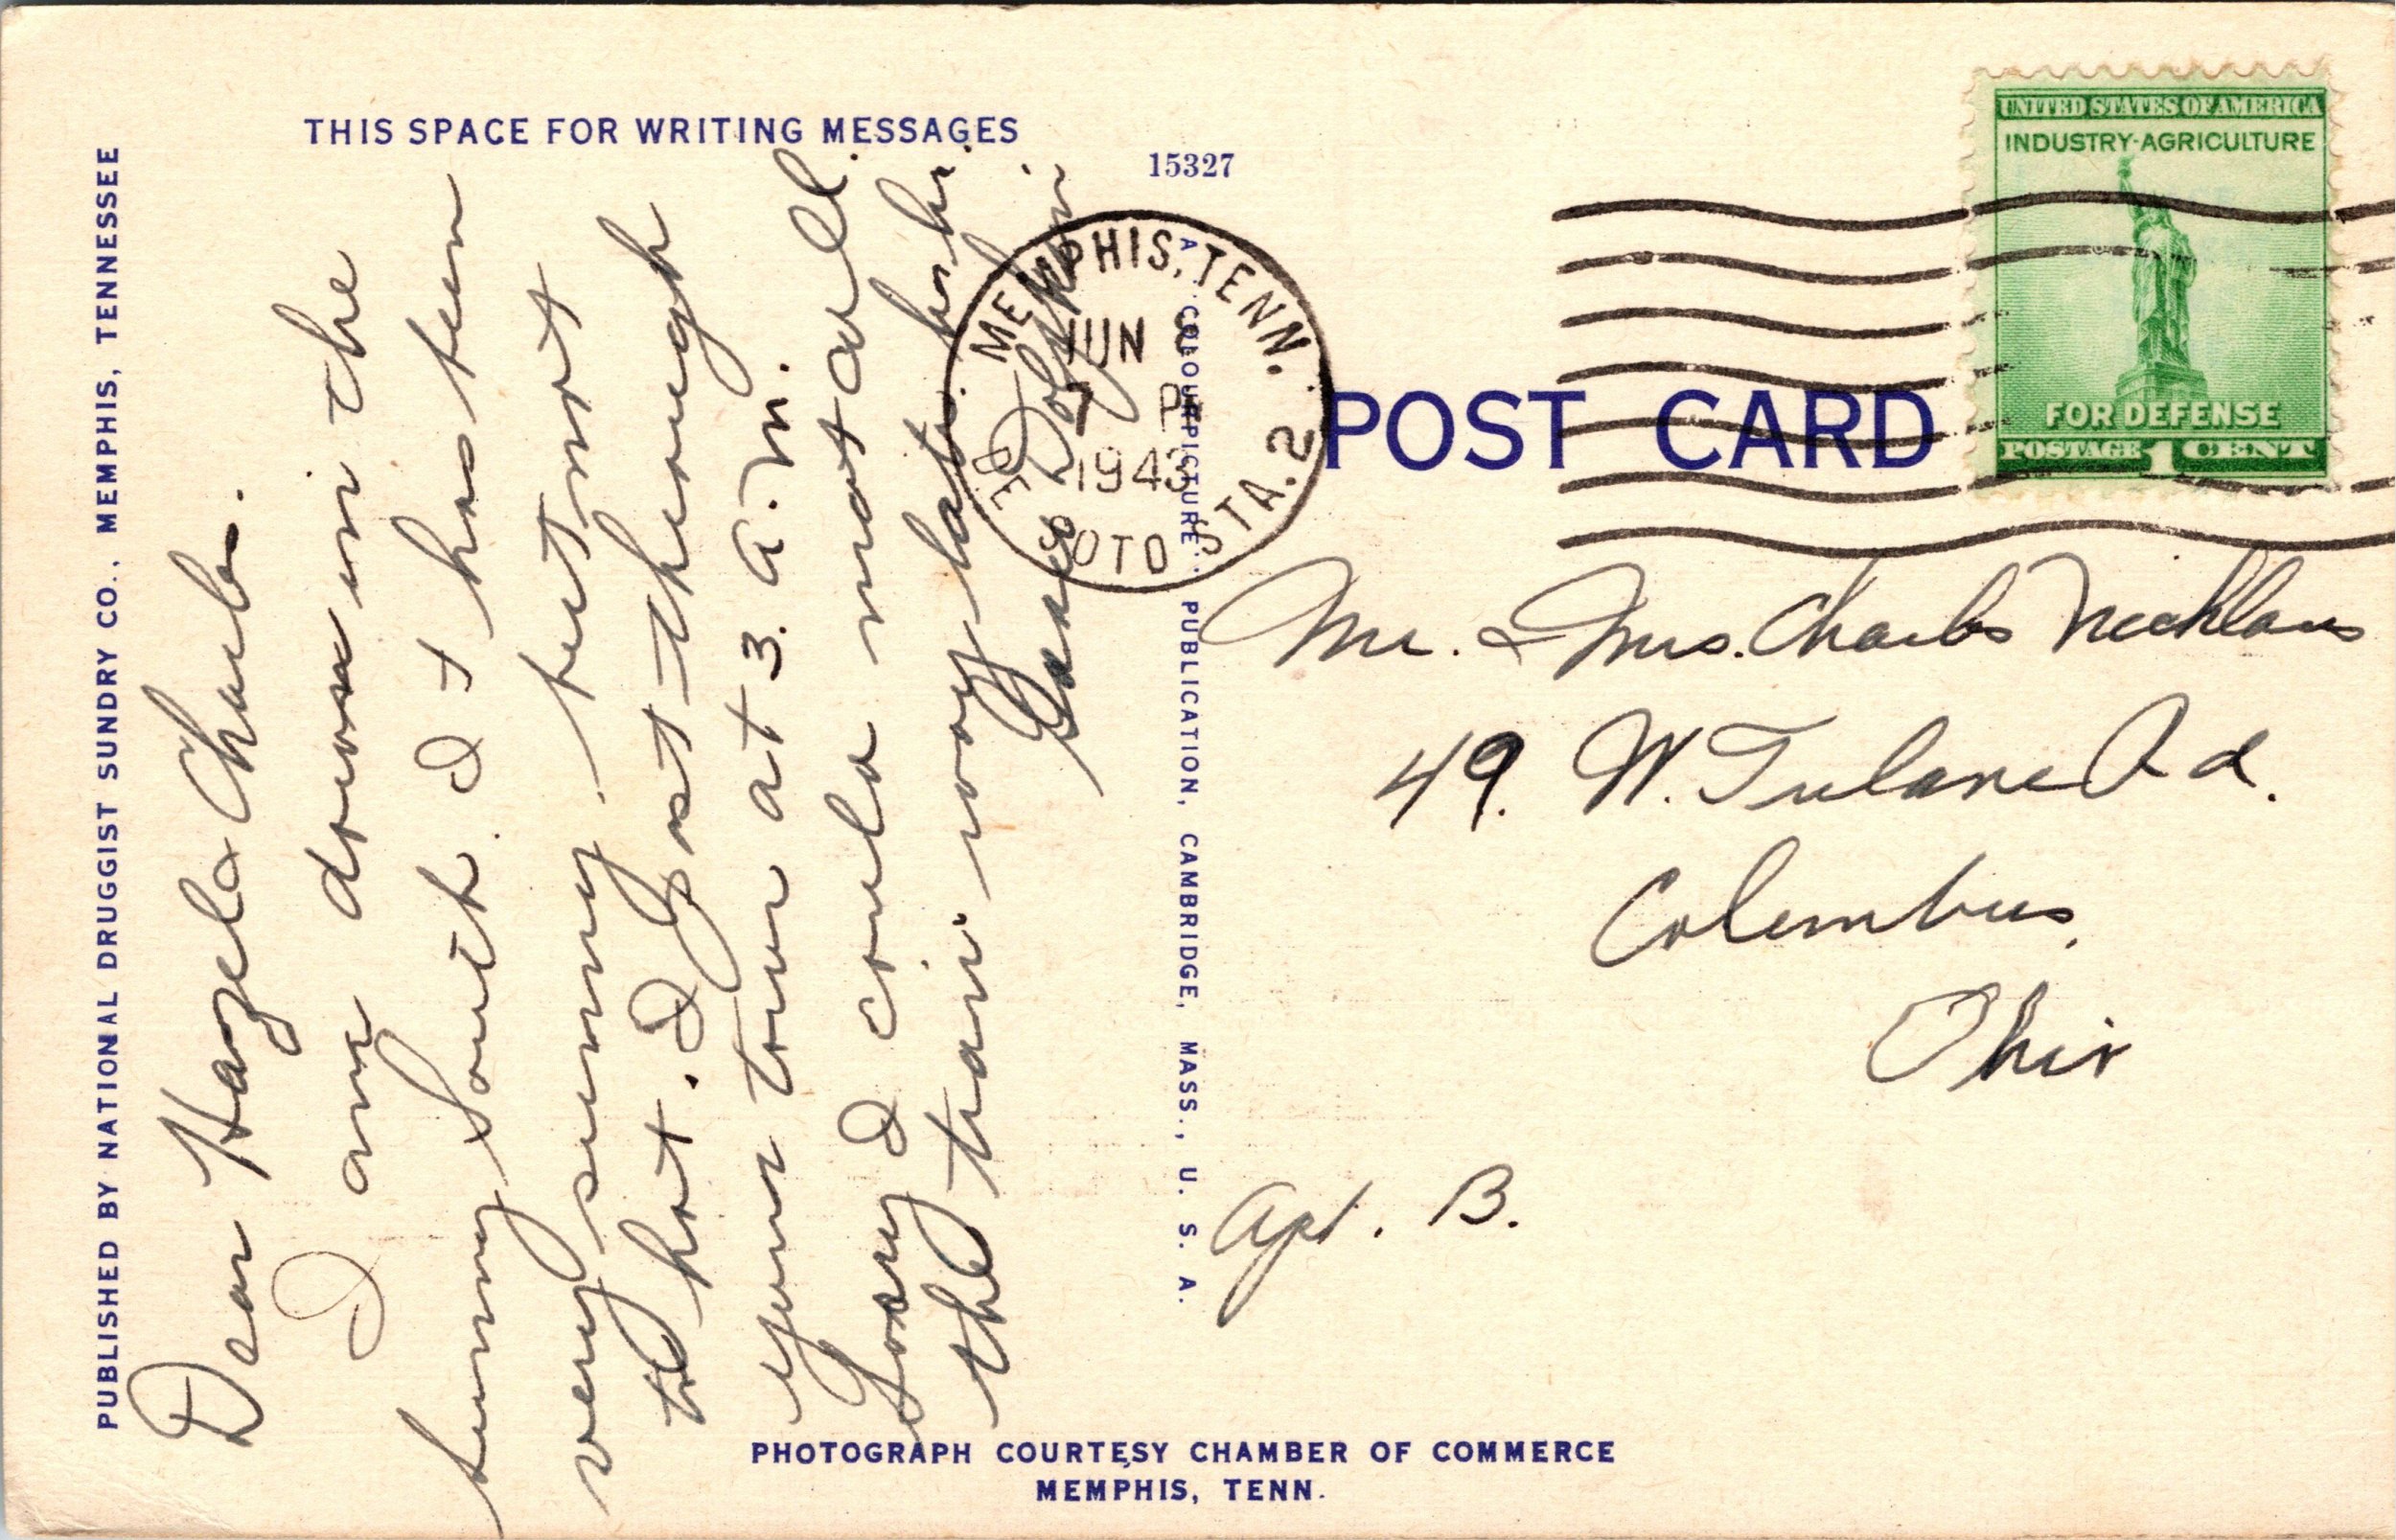 THIS SPACE FOR WRITING MESSAGES
15327
PUBLISHED BY NATIONAL DRUGGIST SUNDRY CO., MEMPHIS, TENNESSEE
Dear Hazel & Charls.
I am down in the
sunny South. It has been
very sunny. but not
to hot. I got through
your town at 3. a. m.
Sorry I could not all.
the train way late. hr hr.
James Dolphin
A "COLOURPICTURE" PUBLICATION, CAMBRIDGE, MASS., U. S. A.
MEMPHIS, TENN.
JUN
P
1943
DE SOTO STA. 2
UNITED STATES OF AMERICA
INDUSTRY-AGRICULTURE
FOR DEFENSE
POSTAGE 1 CENT
POST CARD
Mr. & Mrs. Charls Nichlaus
49. W. Tulane Rd.
Columbus,
Ohio
Apt. B.
PHOTOGRAPH COURTESY CHAMBER OF COMMERCE
MEMPHIS, TENN.